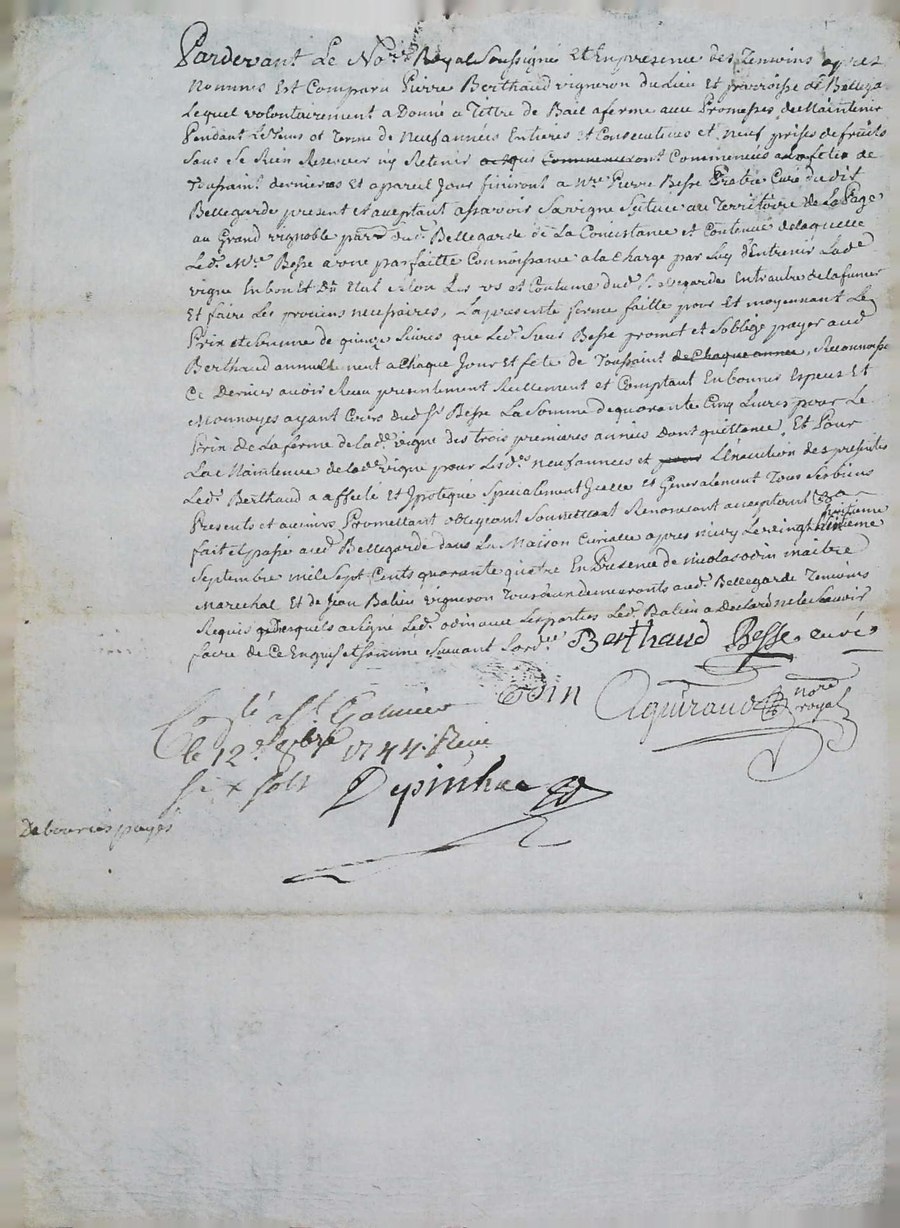 Pardevant Le No.re Royal Soussigné Et En presence des Temoins apres
Nommés Est Comparu Pierre Berthaud vigneron du Lieu et parroisse de Bellega
Lequel volontairement a Donné a Tittre de Bail a ferme avec Promesses de Maintenir
Pendant Le tems et Terme de Neuf années Entieres et Consecutives et Neuf prises de fruits
Sans Se Rien Reserver ny Retenir Commenceront Commencées a la fete de
Toussaint dernieres Et a pareil Jour finiront a M.re Pierre Besse Curé du dit
Bellegarde present et acceptant assavoir Sa vigne Scituée au Territoire de La Page
au Grand vignoble par.sse dud.t Bellegarde de La Concistance et Contenue de laquelle
Led. M.re Besse a parfaitte Connoissance a la Charge par Luy d'Entrenir Lad.e
vigne En bon Et Dû Etat Selon Les us et Coutume dud.t Bellegarde Entr'autre de la fumer
Et faire Les provins necessaires, La presente ferme faitte pour Et moyennant Le
Prix et de quinze Livres que Led. Sieur Besse promet et Soblige payer aud.
Berthaud annuellement a Chaque Jour et fete de Toussaint de Chaque année, Reconnoisse
Ce Dernier avoir Reçu presentement Reellement et Comptant En bonnes Especes Et
Monnoyes ayant Cours dud. S.r Besse La Somme de quarante Cinq Livres pour Le
Prix de La ferme de lad.e vigne des trois premieres année dont quittance, Et Pour
La Maintenue de lad.e vigne pour Lesd.s neuf années et pour L'execution des presentes
Led. Berthaud a affecté Et Ipotequé Specialement Icelle et Generalement Tous Ses biens
Presents et avenirs Promettant obligeant Soumettant Renoncant acceptant
fait et passé aud. Bellegarde dans La Maison Curialle apres midy Le vingt huitieme
huitieme
Septembre mil Sept Cents quarante quatre En Presence de nicolas odin maitre
Marechal Et de Jean Balieu vigneron Tous deux demeurants aud. Bellegarde Temoins
Requis Desquels a Signé Led. odin avec Les parties Led. Balieu a Declaré ne le Scavoir
faire de Ce Enquis et Somme Suivant L'ord.ce Berthaud Besse curé
Odin Aguiraud no.re royal
Con.lé a S.t Galmier
le 12 8bre 1744 Reçu
six sols Depinhac
Debourcés payés